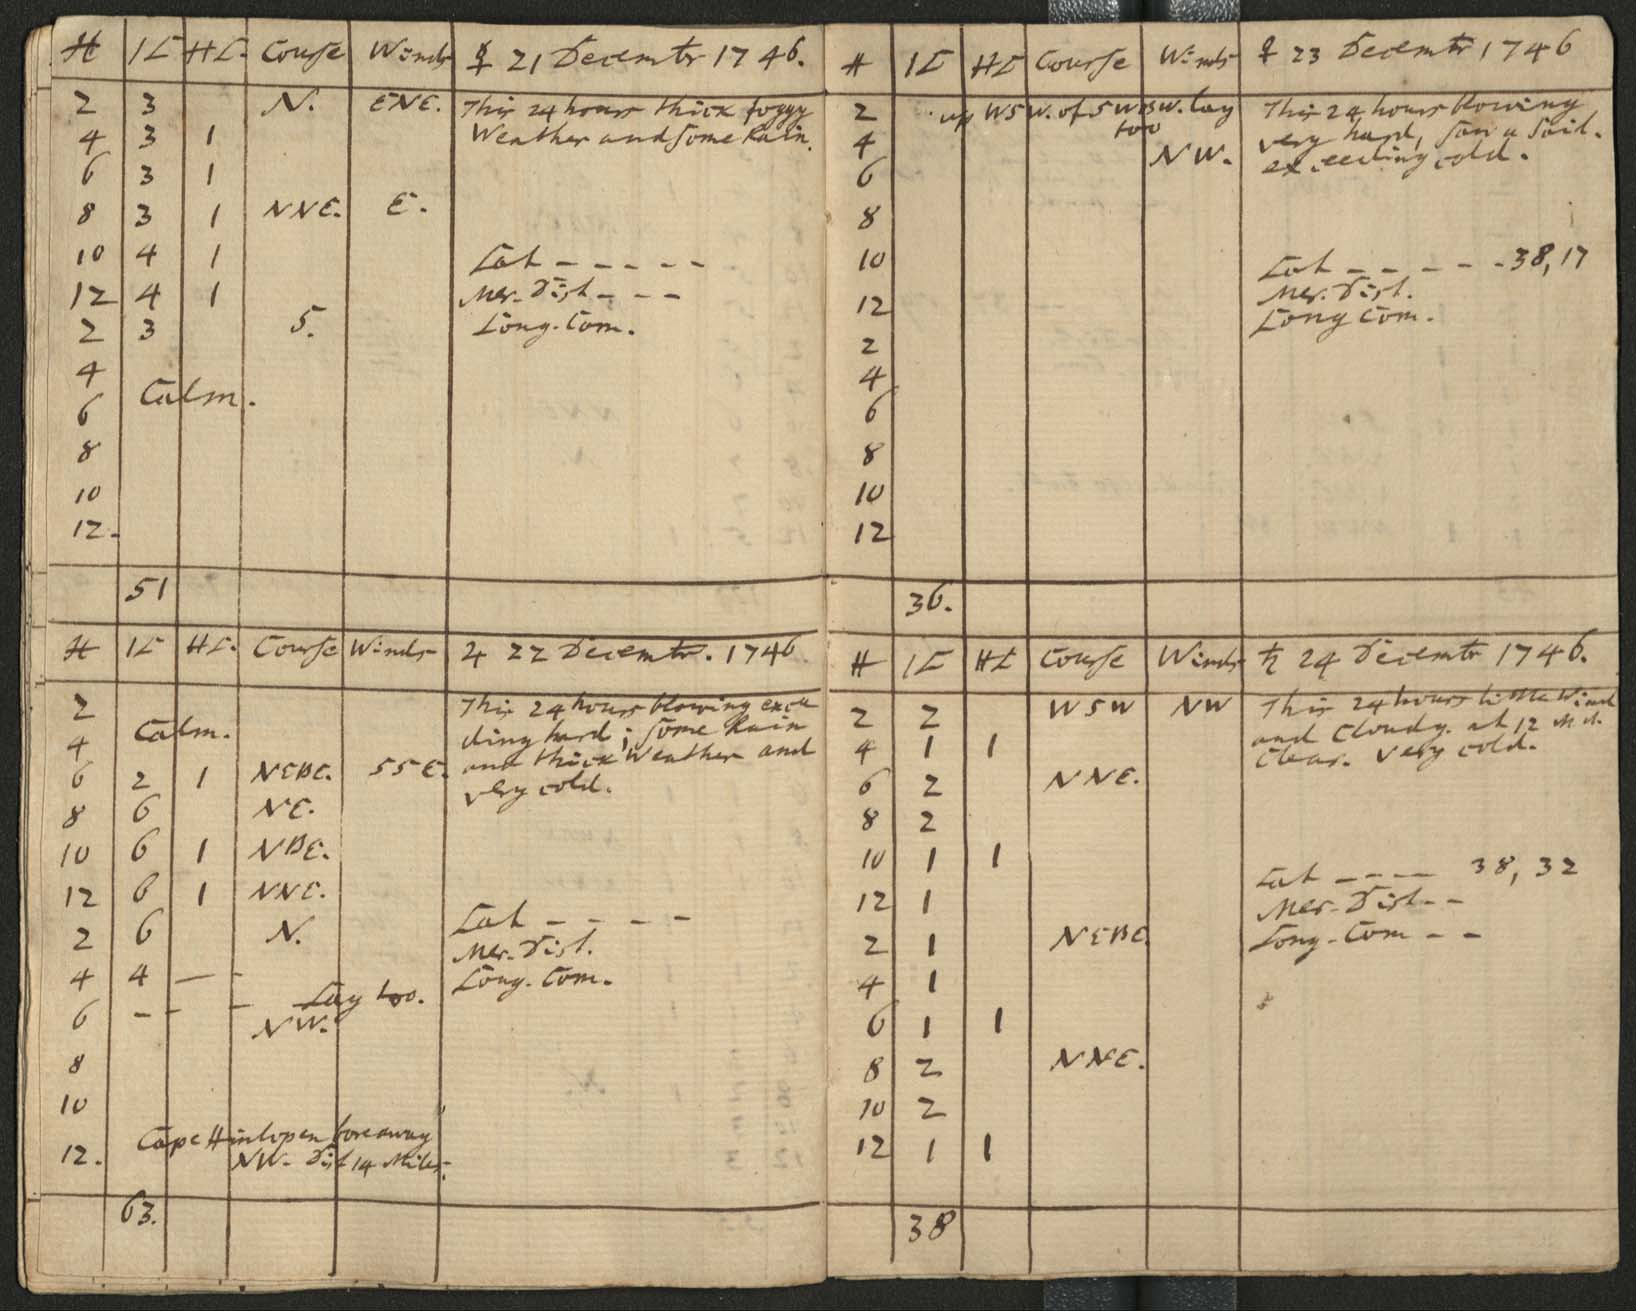 H 1K HK. Course Winds ☿ 21 Decembr 1746.
2 3 N. ENE. This 24 hours thick foggy
4 3 1 Weather and some Rain.
6 3 1
8 3 1 NNE. E.
10 4 1 Lat – – – – –
12 4 1 Mer. Dist – – –
2 3 S. Long. Com.
4
Calm.
6
8
10
12.
51
H 1K HK. Course Winds ♃ 22 Decembr. 1746
2 This 24 hours blowing excee
Calm. ding hard; some Rain
4 and thick Weather and
6 2 1 NEBE. SSE. very cold.
8 6 NE.
10 6 1 NBE.
12 6 1 NNE.
2 6 N. Lat – – – –
Mer. Dist.
4 4 — – Long. Com.
6 – – – Lay too.
NW.
8
10
Cape Hinlopen bore away
12. NW. Dist 14 Miles.
63.
H 1K HK Course Winds ♀ 23 Decembr 1746
2 up WSW. of SWBW. lay This 24 hours blowing
4 too very hard, saw a Sail.
6 NW. exceeding cold.
8
10 Lat – – – – – 38,17
12 Mer. Dist.
Long Com.
2
4
6
8
10
12
36.
H 1K HK Course Winds ♄ 24 Decembr 1746.
2 2 WSW NW This 24 hours little Wind
4 1 1 and Cloudy. at 12 M d.
Clear. Very cold.
6 2 NNE.
8 2
10 1 1 Lat – – – – 38, 32
12 1 Mer. Dist – –
2 1 NEBE. Long. Com – –
4 1
6 1 1
8 2 NNE.
10 2
12 1 1
38